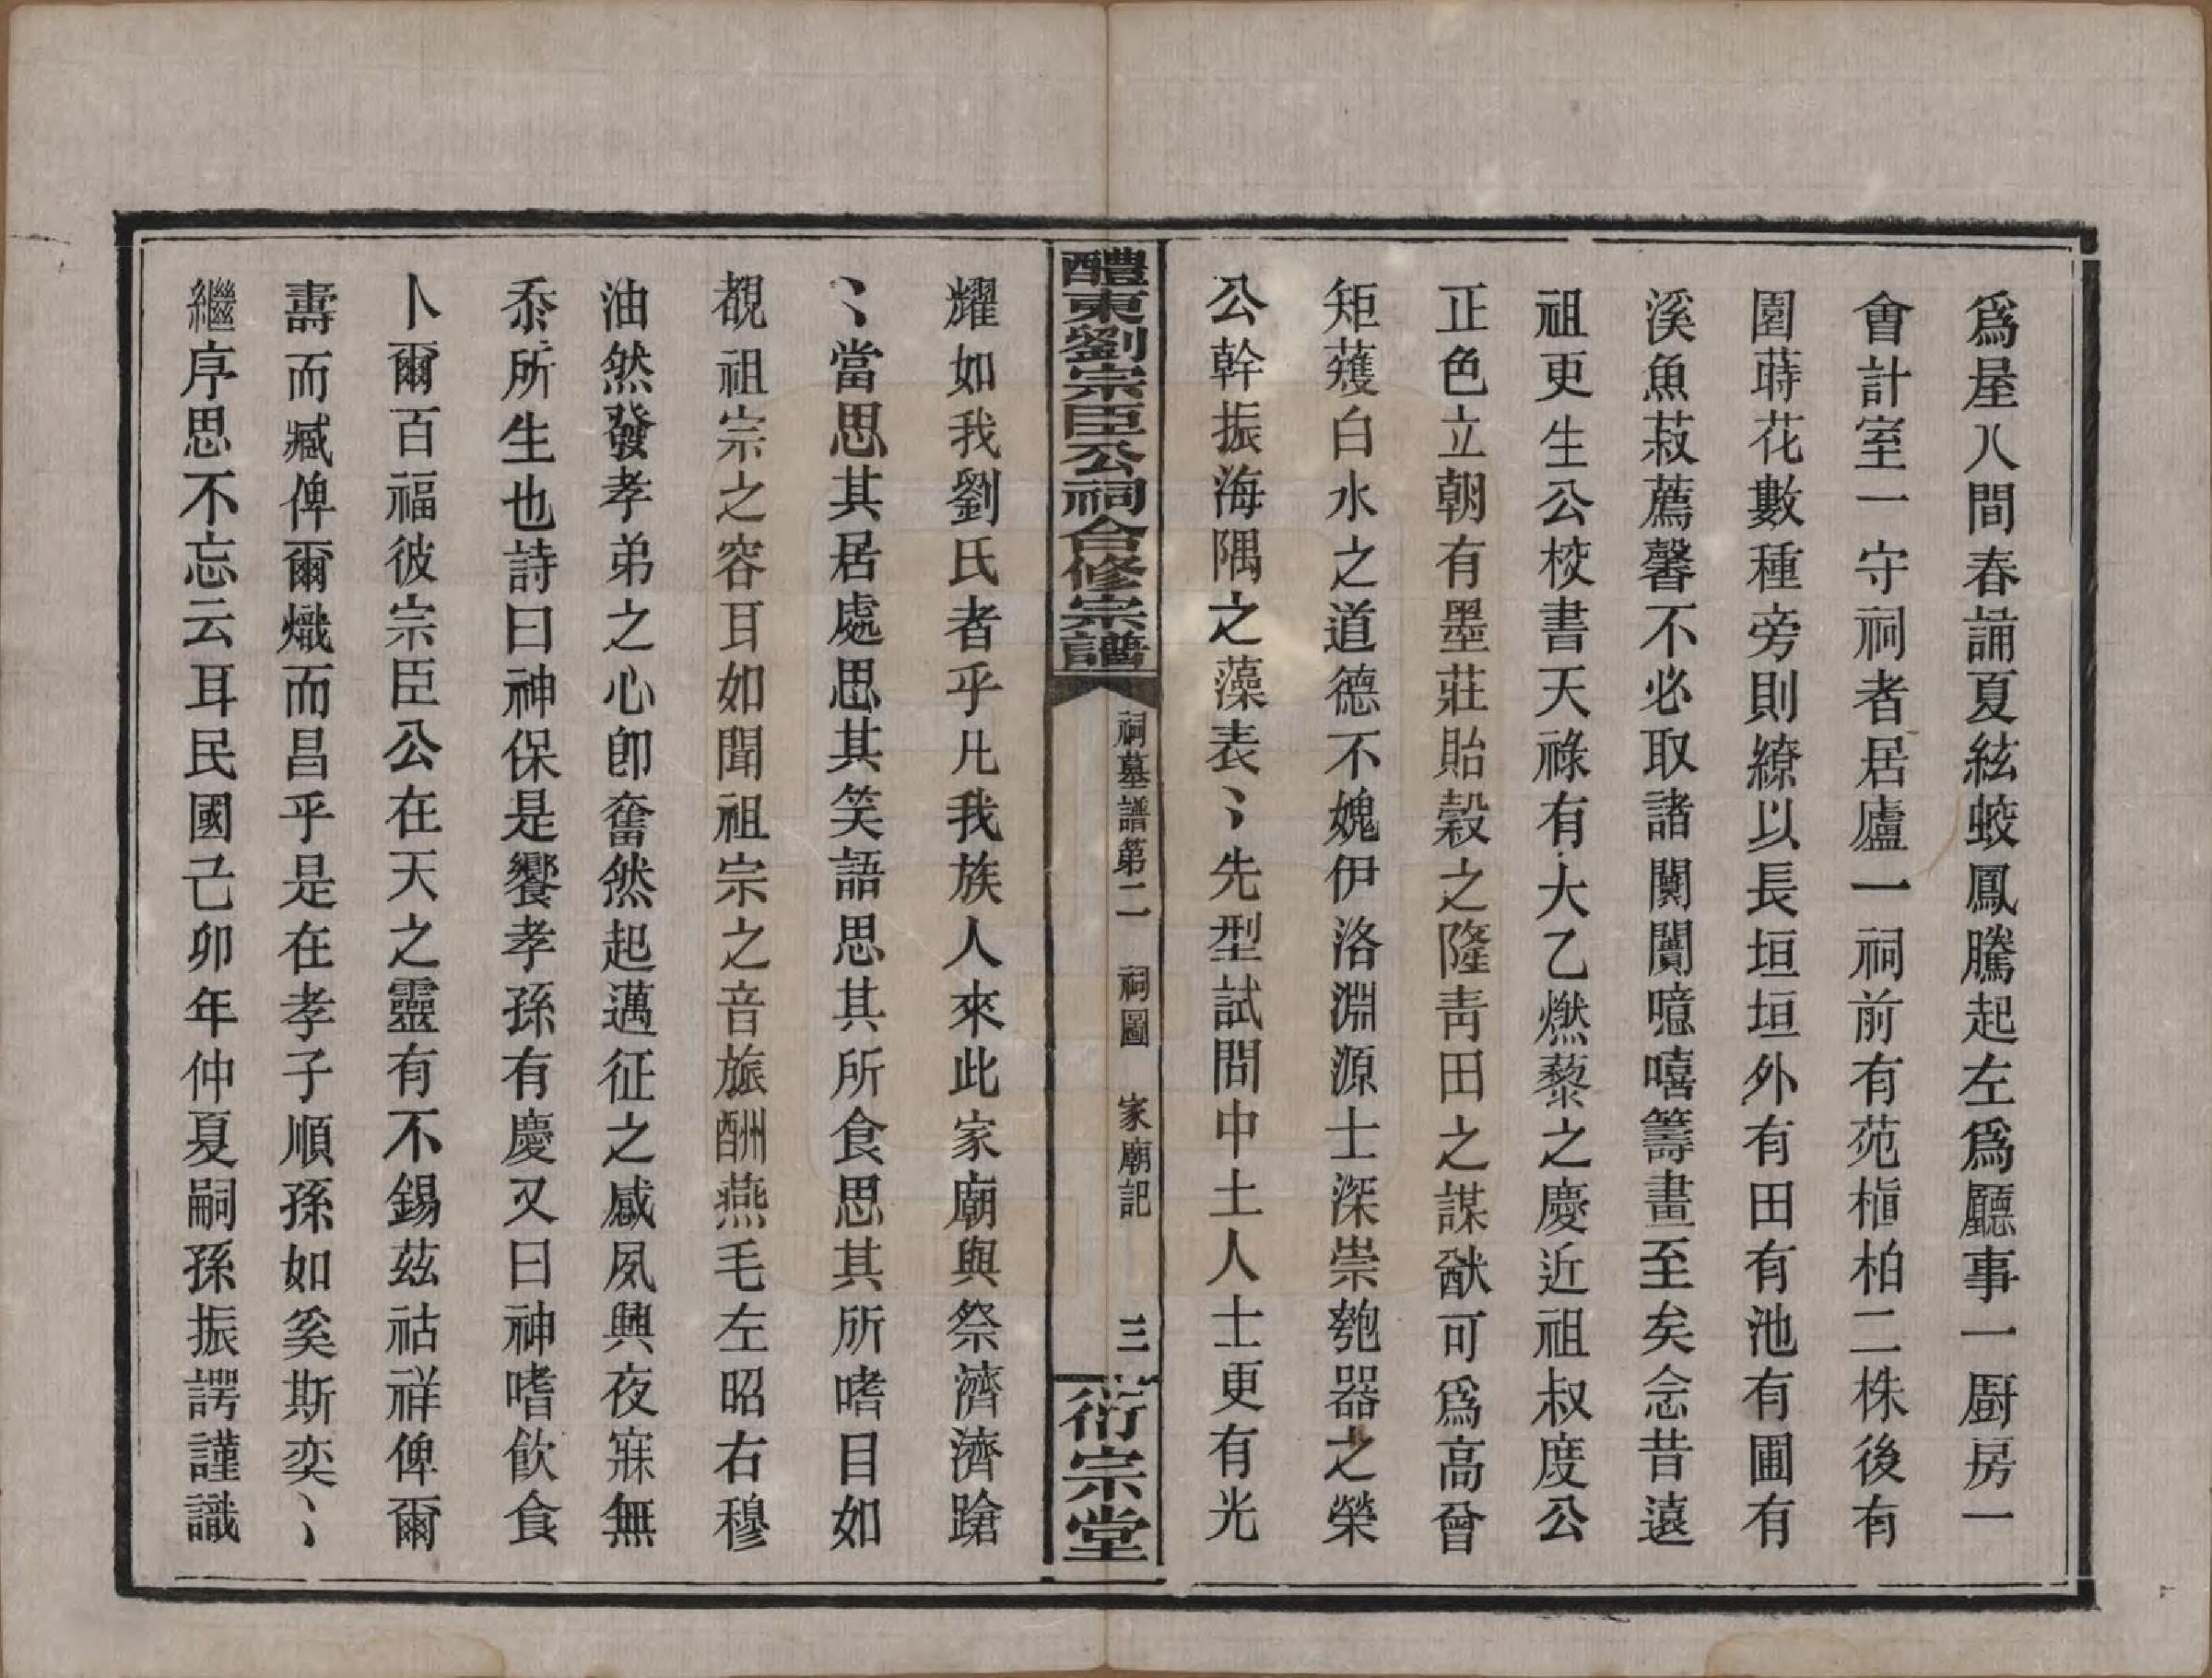 爲屋八間春誦夏絃蛟鳳騰起左爲廳事一厨房一
會計室一守祠者居廬一祠前有苑植柏二株後有
園蒔花數種旁則繚以長垣垣外有田有池有圃有
溪魚菽薦馨不必取諸闤闠噫嘻籌畫至矣念昔遠
祖更生公校書天祿有大乙燃藜之慶近祖叔度公
正色立朝有墨莊貽穀之隆靑田之謀猷可爲高曾
矩蒦白水之道德不媿伊洛淵源士深崇匏器之榮
公幹振海隅之藻表〻先型試問中土人士更有光
醴東劉宗臣公祠合修宗譜 祠墓譜第二 祠圖 家廟記 三 衍宗堂
耀如我劉氏者乎凡我族人來此家廟與祭濟濟蹌
〻當思其居處思其笑語思其所食思其所嗜目如
覩祖宗之容耳如聞祖宗之音旅酬燕毛左昭右穆
油然發孝弟之心卽奮然起邁征之感夙興夜寐無
忝所生也詩曰神保是饗孝孫有慶又曰神嗜飮食
卜爾百福彼宗臣公在天之靈有不錫茲祜祥俾爾
壽而臧俾爾熾而昌乎是在孝子順孫如奚斯奕〻
繼序思不忘云耳民國己卯年仲夏嗣孫振諤謹識